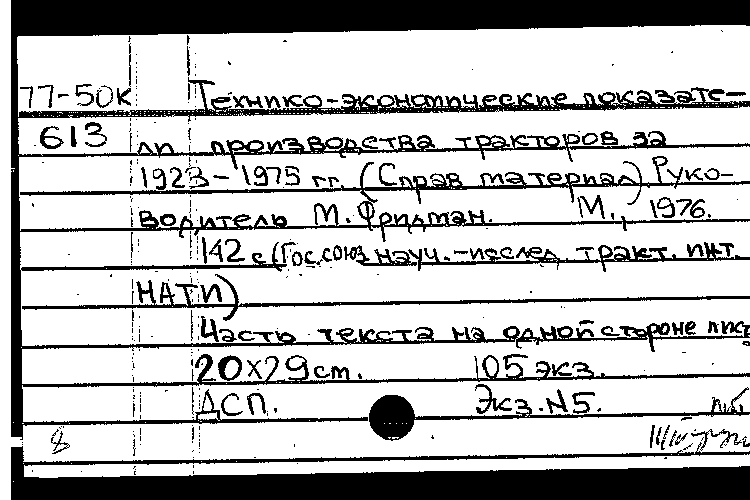 77-50к Технико-экономические показате-
613 ли производства тракторов за
1923-1975 гг. (Справ материал). Руко-
водитель М. Фридман. М., 1976.
142 с (Гос. союз. науч.-исслед. тракт. инт.
НАТИ)
Часть текста на одной стороне лист
20х29 cm. 105 экз.
ДСП. Экз. N5.
8